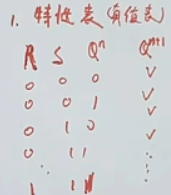 1. 特性表(真值表)
R S Qⁿ Qⁿ⁺¹
0 0 0 ✓
0 0 1 ✓
0 1 0 ✓
0 1 1 ⋮
⋮ ⋮
1 1 1